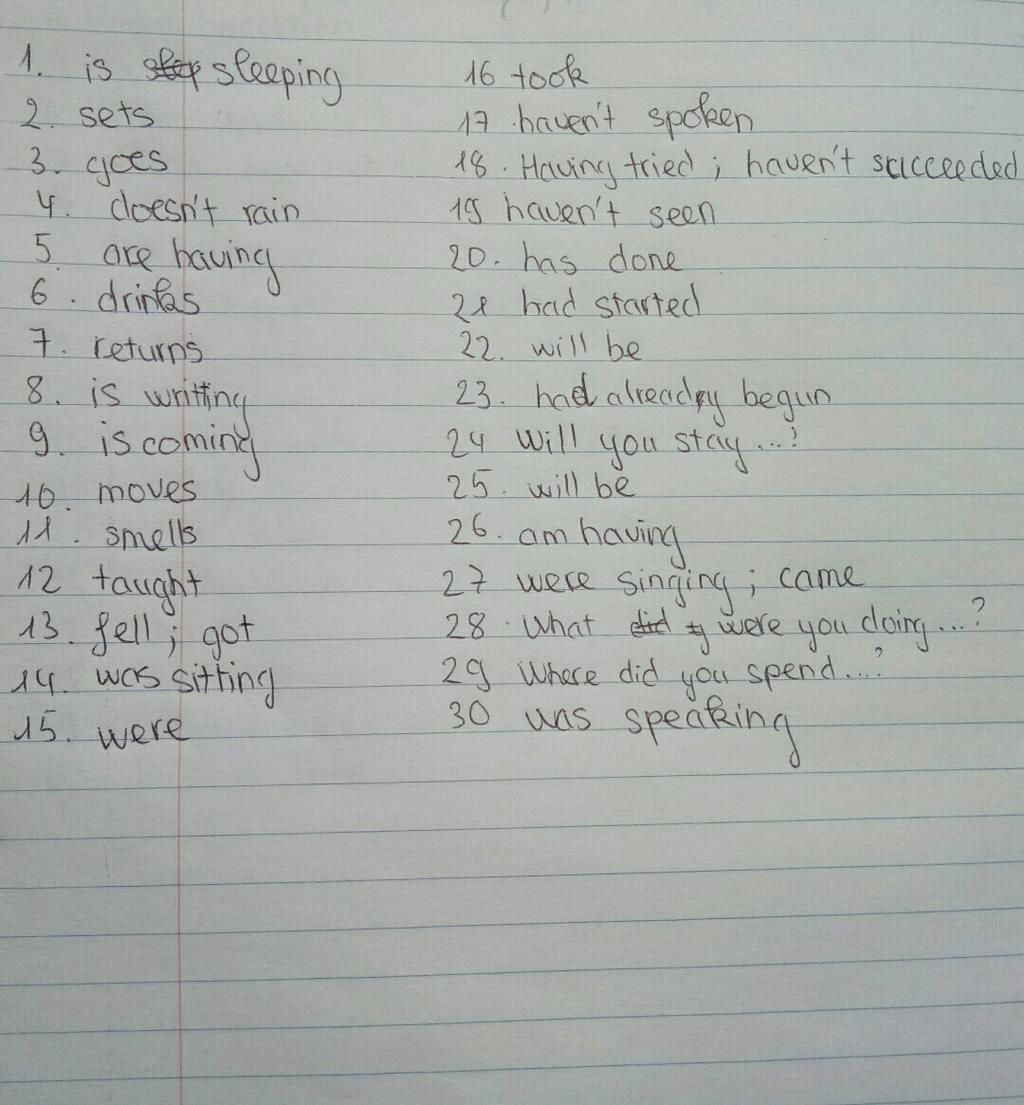 1. is sleeping
2. sets
3. goes
4. doesn't rain
5. are having
6. drinks
7. returns
8. is writting
9. is coming
10. moves
11. smells
12 taught
13. fell; got
14. was sitting
15. were
16 took
17 haven't spoken
18. Having tried; haven't succeeded
19 haven't seen
20. has done
21 had started
22. will be
23. had already begun
24 Will you stay...?
25. will be
26. am having
27 were singing; came
28. What did y were you doing...?
29 Where did you spend....?
30 was speaking